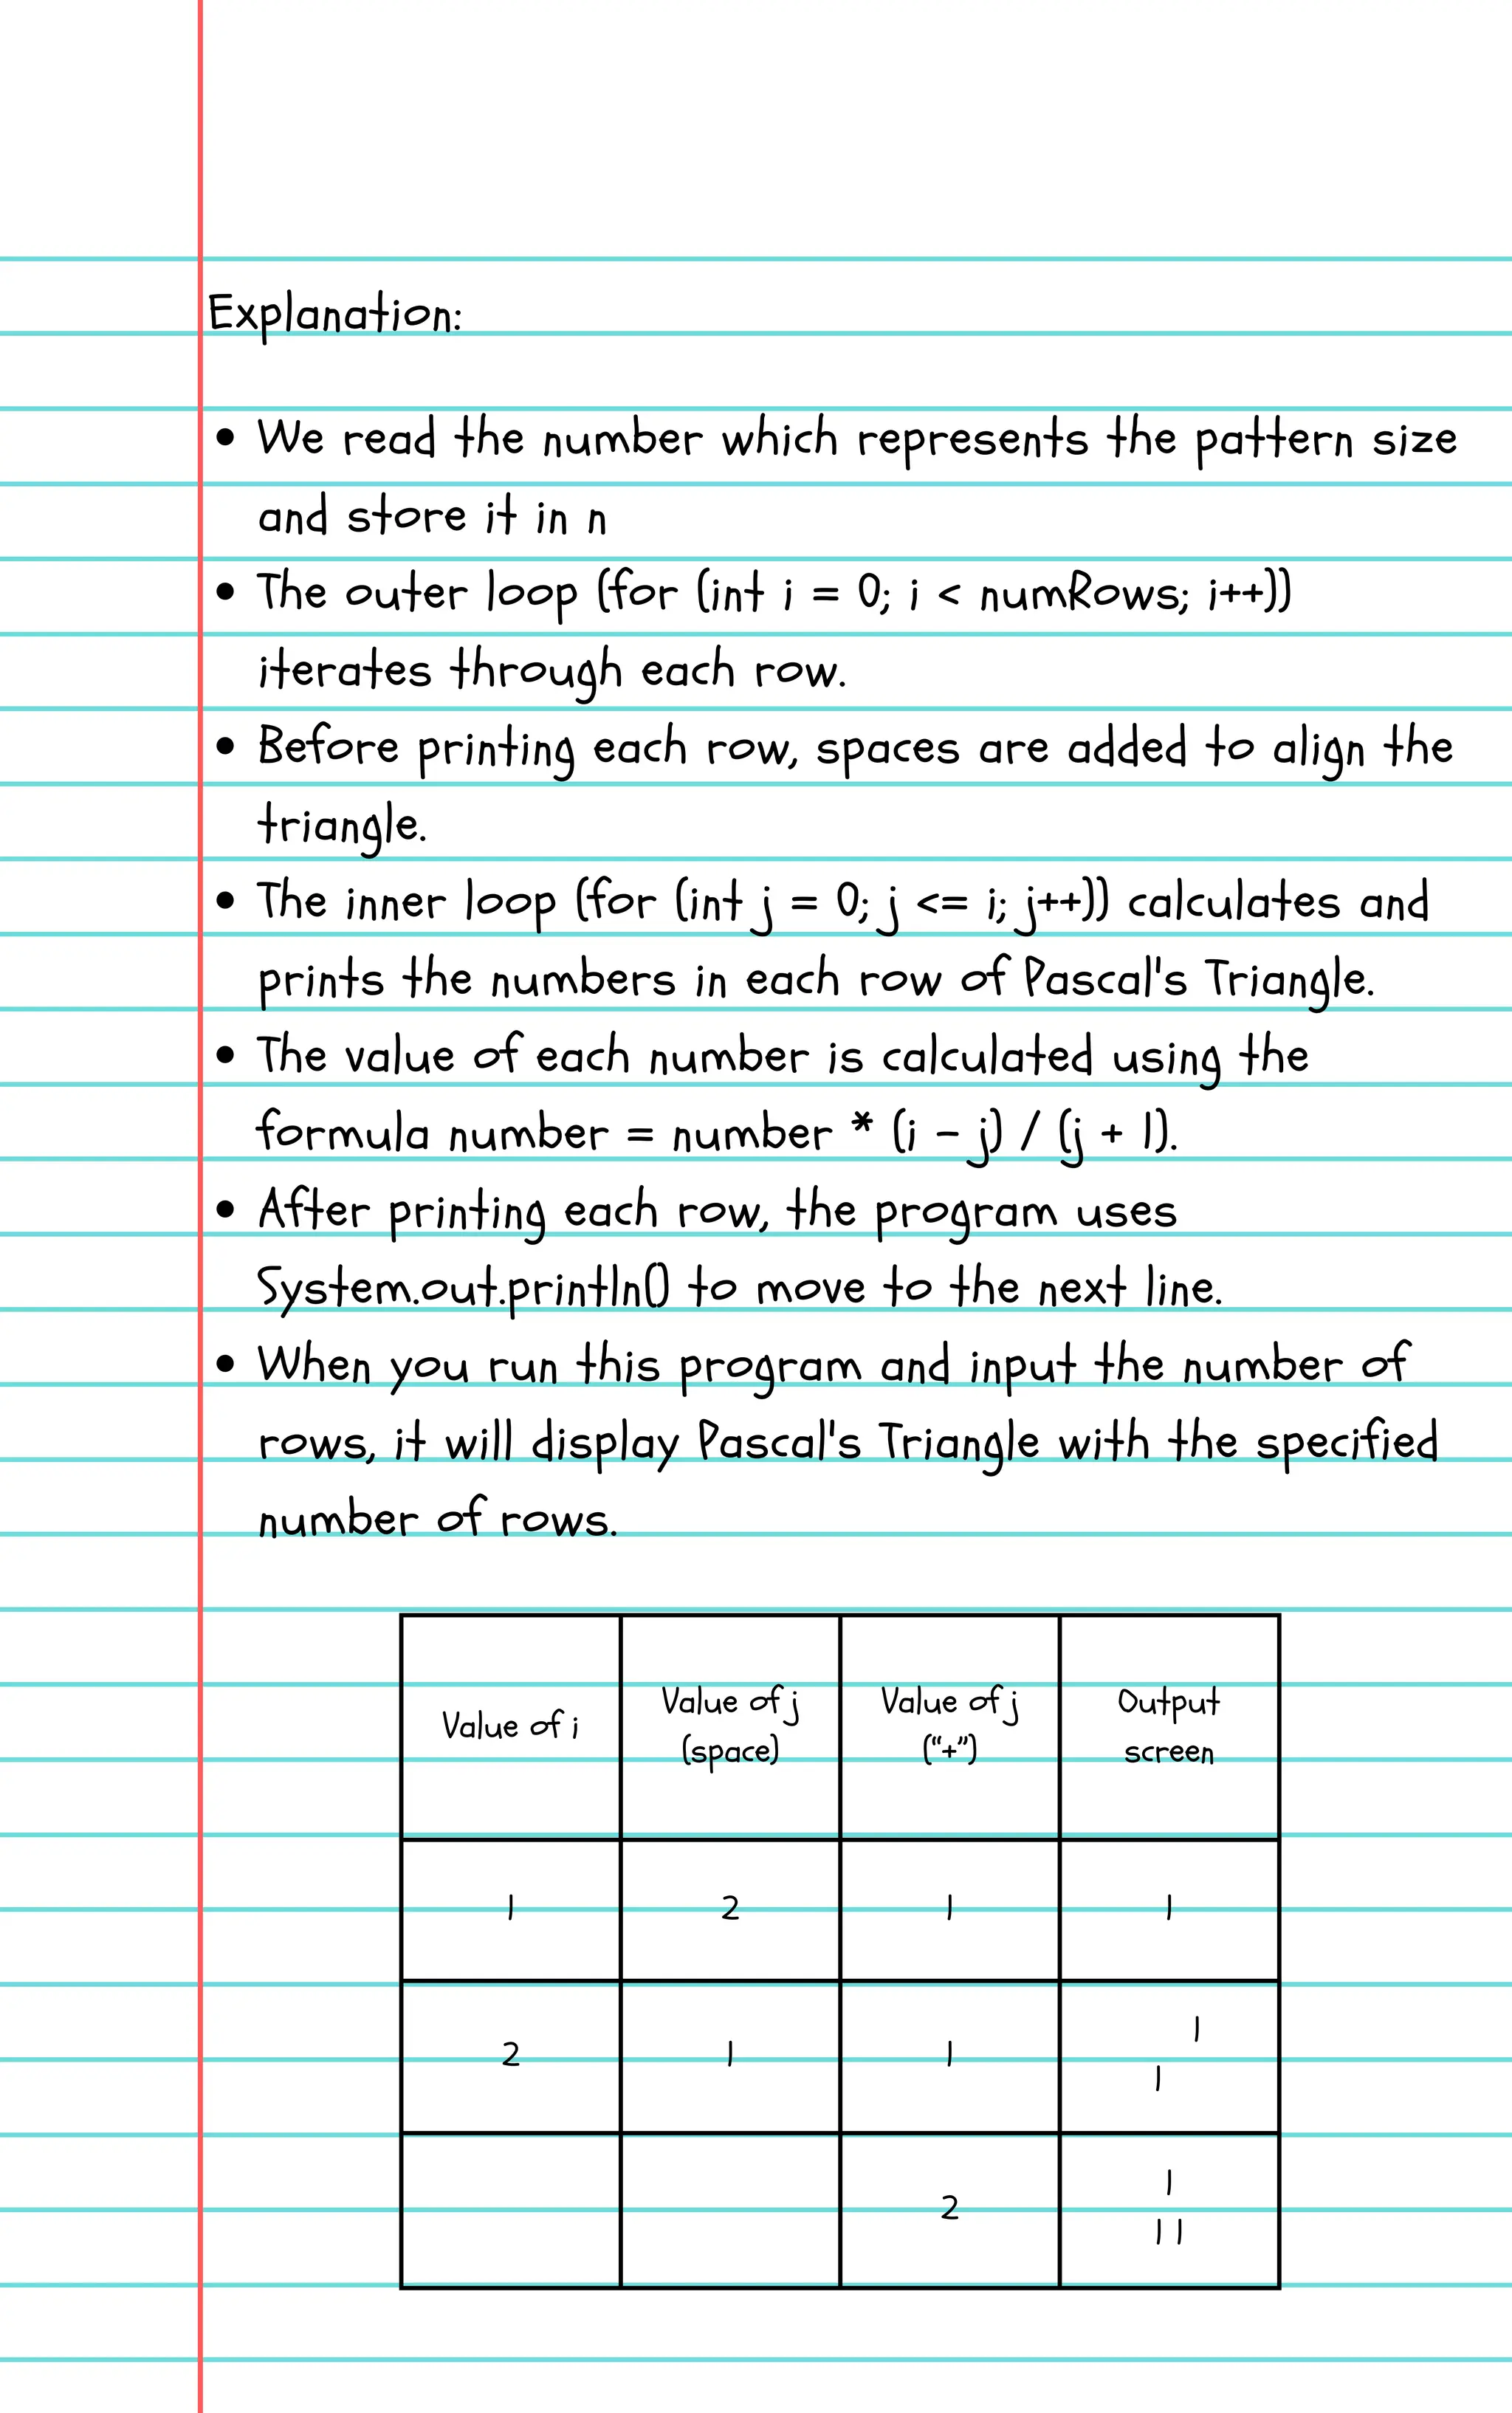 Explanation:
• We read the number which represents the pattern size
and store it in n
• The outer loop (for (int i = 0; i < numRows; i++))
iterates through each row.
• Before printing each row, spaces are added to align the
triangle.
• The inner loop (for (int j = 0; j <= i; j++)) calculates and
prints the numbers in each row of Pascal's Triangle.
• The value of each number is calculated using the
formula number = number * (i - j) / (j + 1).
• After printing each row, the program uses
System.out.println() to move to the next line.
• When you run this program and input the number of
rows, it will display Pascal's Triangle with the specified
number of rows.
Value of i
Value of j
(space)
Value of j
(“+”)
Output
screen
1
2
1
1
2
1
1
1
1
2
1
1 1